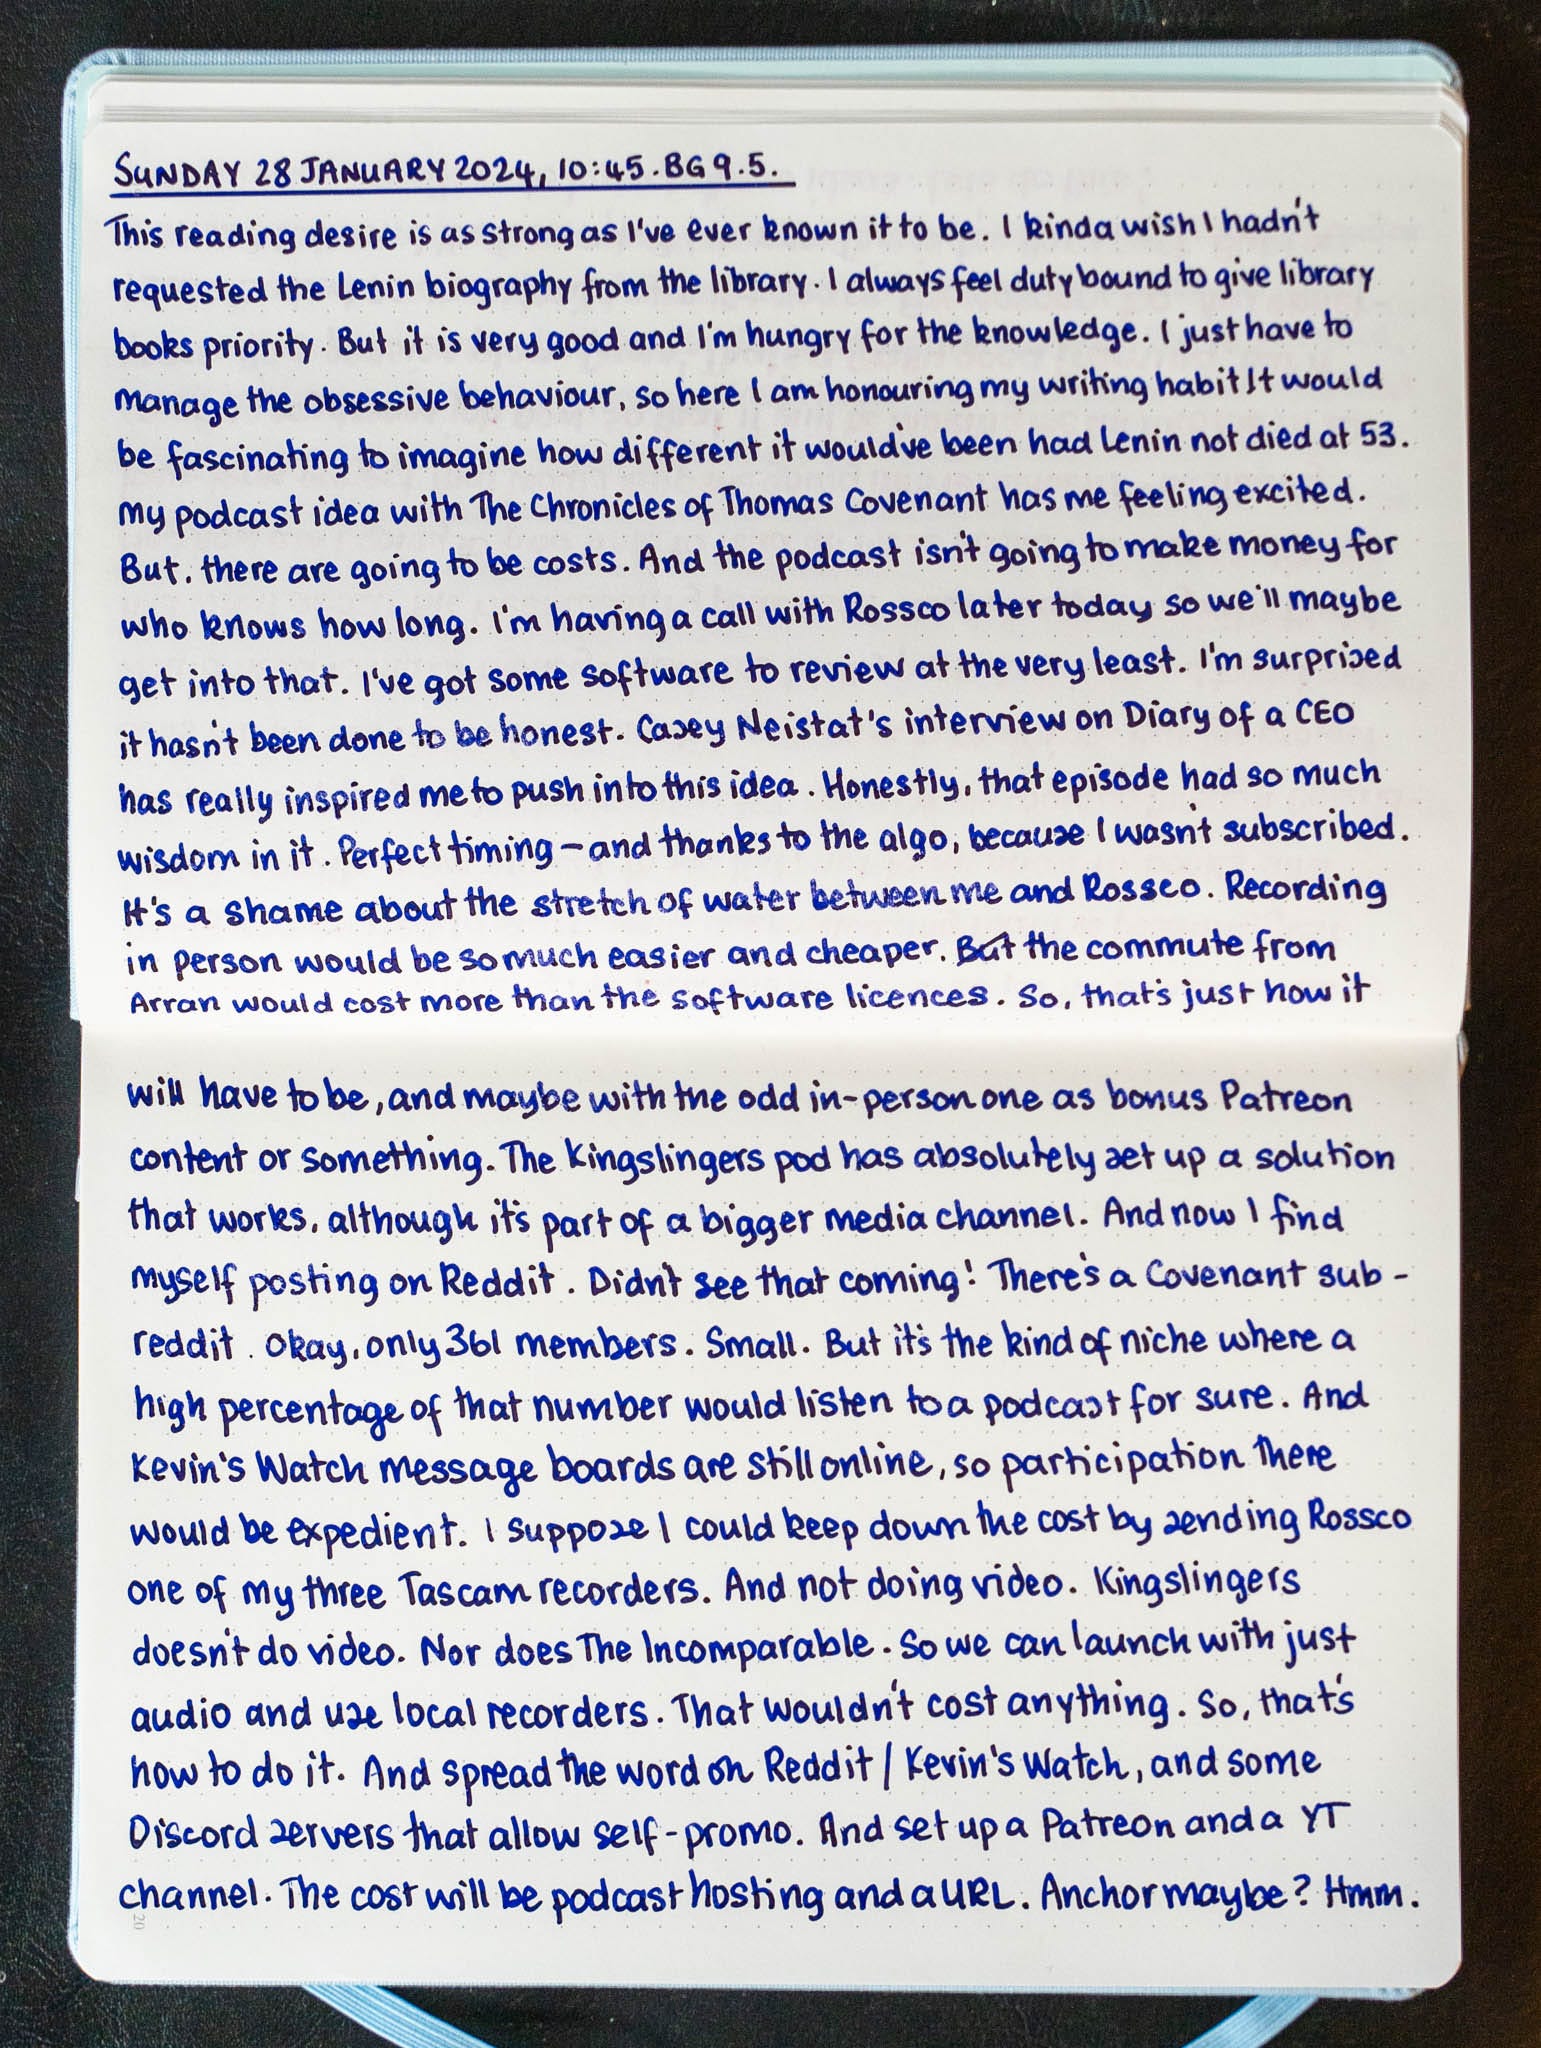 SUNDAY 28 JANUARY 2024, 10:45. BG 9.5.
This reading desire is as strong as I've ever known it to be. I kinda wish I hadn't
requested the Lenin biography from the library. I always feel duty bound to give library
books priority. But it is very good and I'm hungry for the knowledge. I just have to
manage the obsessive behaviour, so here I am honouring my writing habit. It would
be fascinating to imagine how different it would've been had Lenin not died at 53.
My podcast idea with The Chronicles of Thomas Covenant has me feeling excited.
But, there are going to be costs. And the podcast isn't going to make money for
who knows how long. I'm having a call with Rossco later today so we'll maybe
get into that. I've got some software to review at the very least. I'm surprised
it hasn't been done to be honest. Casey Neistat's interview on Diary of a CEO
has really inspired me to push into this idea. Honestly, that episode had so much
wisdom in it. Perfect timing – and thanks to the algo, because I wasn't subscribed.
It's a shame about the stretch of water between me and Rossco. Recording
in person would be so much easier and cheaper. But the commute from
Arran would cost more than the software licences. So, that's just how it
will have to be, and maybe with the odd in-person one as bonus Patreon
content or something. The Kingslingers pod has absolutely set up a solution
that works, although it's part of a bigger media channel. And now I find
myself posting on Reddit. Didn't see that coming! There's a Covenant sub-
reddit. Okay, only 361 members. Small. But it's the kind of niche where a
high percentage of that number would listen to a podcast for sure. And
Kevin's Watch message boards are still online, so participation there
would be expedient. I suppose I could keep down the cost by sending Rossco
one of my three Tascam recorders. And not doing video. Kingslingers
doesn't do video. Nor does The Incomparable. So we can launch with just
audio and use local recorders. That wouldn't cost anything. So, that's
how to do it. And spread the word on Reddit / Kevin's Watch, and some
Discord servers that allow self-promo. And set up a Patreon and a YT
channel. The cost will be podcast hosting and a URL. Anchor maybe? Hmm.
20